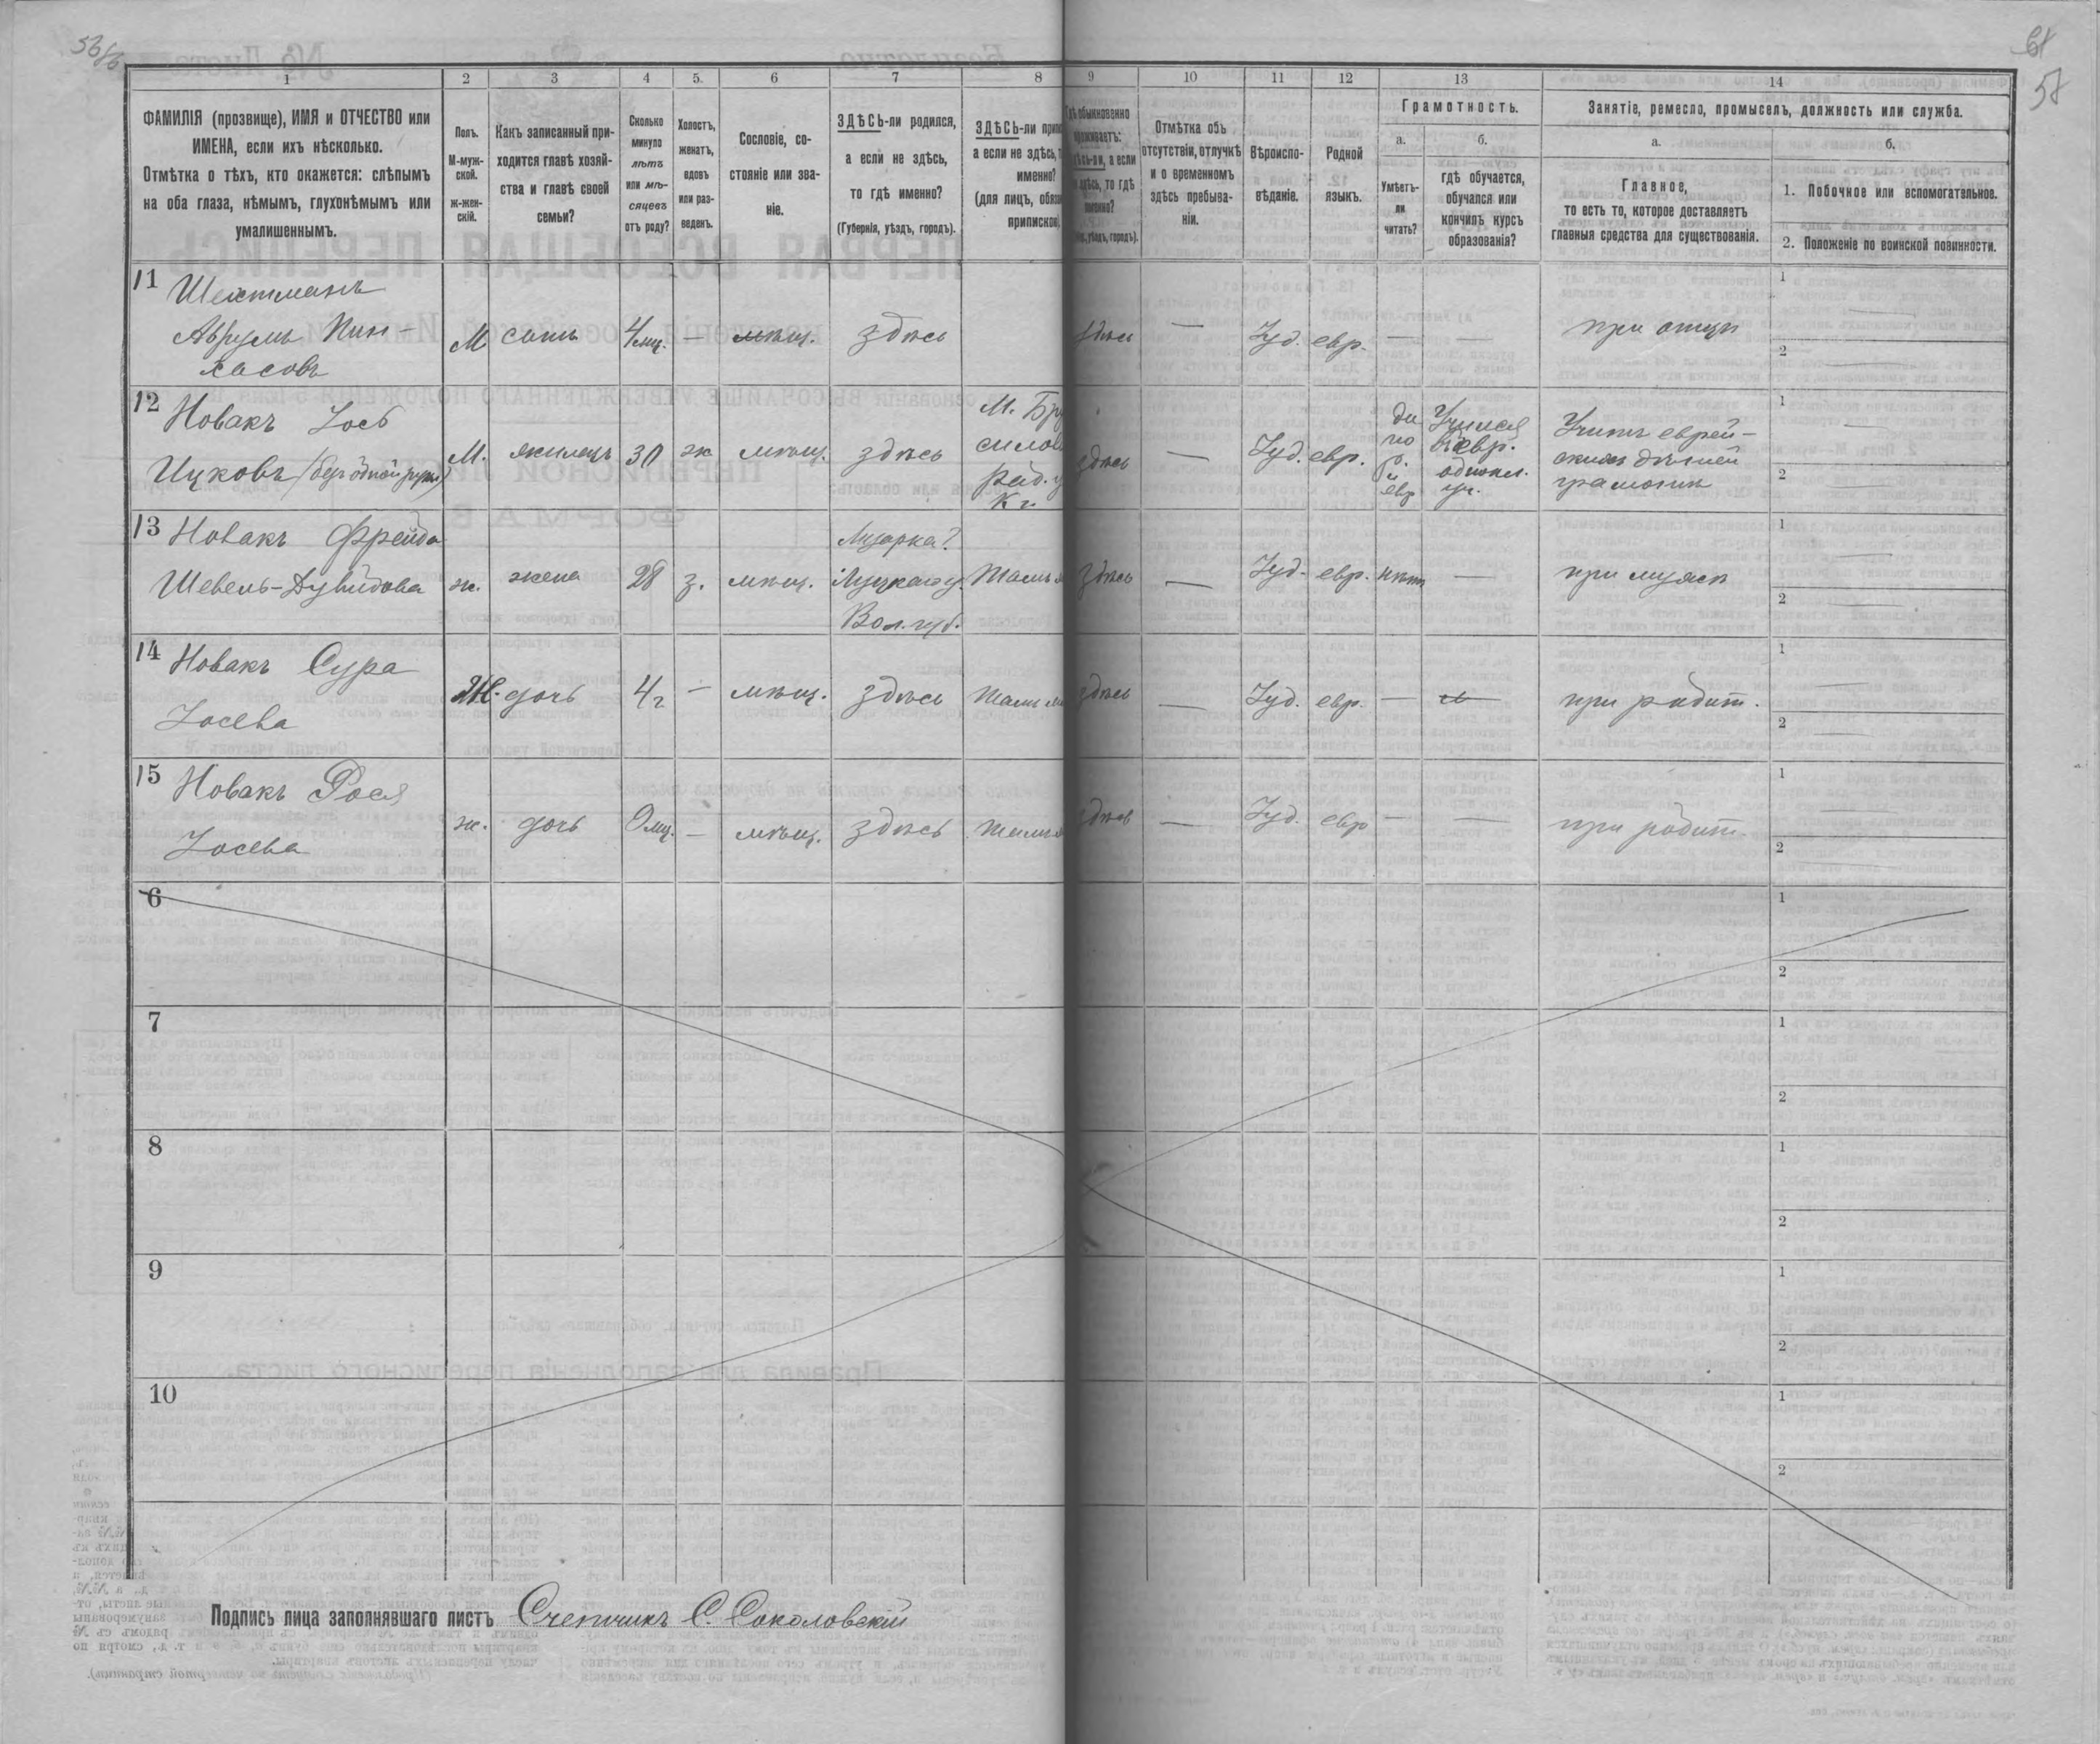 58
1
2
3
4
5.
6
7
8
9
10
11
12
13
14
ФАМИЛІЯ (прозвище), ИМЯ и ОТЧЕСТВО или
ИМЕНА, если ихъ нѣсколько.
Отмѣтка о тѣхъ, кто окажется: слѣпымъ
на оба глаза, нѣмымъ, глухонѣмымъ или
умалишеннымъ.
Полъ.
М-муж-
ской.
ж-жен-
скій.
Какъ записанный при-
ходится главѣ хозяй-
ства и главѣ своей
семьи?
Сколько
минуло
лѣтъ
или мѣ-
сяцевъ
отъ роду?
Холостъ,
женатъ,
вдовъ
или раз-
веденъ.
Сословіе, со-
стояніе или зва-
ніе.
ЗДѢСЬ-ли родился,
а если не здѣсь,
то гдѣ именно?
(Губернія, уѣздъ, городъ).
ЗДѢСЬ-ли
а если не здѣсь,
именно?
(для лицъ,
Гдѣ обыкновенно
проживаетъ:
а если
здѣсь, то гдѣ
именно?
уѣздъ, городъ).
Отмѣтка объ
отсутствіи, отлучкѣ
и о временномъ
здѣсь пребыва-
ніи.
Вѣроиспо-
вѣданіе.
Родной
языкъ.
Грамотность.
а.
Умѣетъ-
ли
читать?
б.
гдѣ обучается,
обучался или
кончилъ курсъ
образованія?
Занятіе, ремесло, промыселъ, должность или служба.
а.
Главное,
то есть то, которое доставляетъ
главныя средства для существованія.
б.
1. Побочное или вспомогательное.
2. Положеніе по воинской повинности.
11 Шехтманъ
Аврумъ Пин-
хасовъ
М сынъ 4 мц. — мѣщ. здѣсь здѣсь — Іуд. евр. — — при отцѣ
1
2
12 Новакъ Іось
Ицковъ (безъ одной руки)
М. жилецъ 30 ж мѣщ. здѣсь
М. Бру
силов
Рад. у
К г.
здѣсь — Іуд. евр.
да
по
р.
и
евр
Учился
въ евр.
однокл.
уч.
Учитъ еврей-
скихъ дѣтей
грамотѣ
1
2
13 Новакъ Фрейда
Шевель-Дувидова
ж. жена 28 з. мѣщ.
Луцкаго у.
Вол. губ.
здѣсь — Іуд. евр. нѣтъ — при мужѣ
1
2
14 Новакъ Сура
Іосева
Ж. дочь 4 г — мѣщ. здѣсь тамъ здѣсь — Іуд. евр. — — при родит.
1
2
15 Новакъ Рося
Іосева
ж. дочь 9 мц. — мѣщ. здѣсь тамъ здѣсь — Іуд. евр — — при родит.
1
2
6
1
2
7
1
2
8
1
2
9
1
2
10
1
2
Подпись лица заполнявшаго листъ Счетчикъ С. Соколовскій